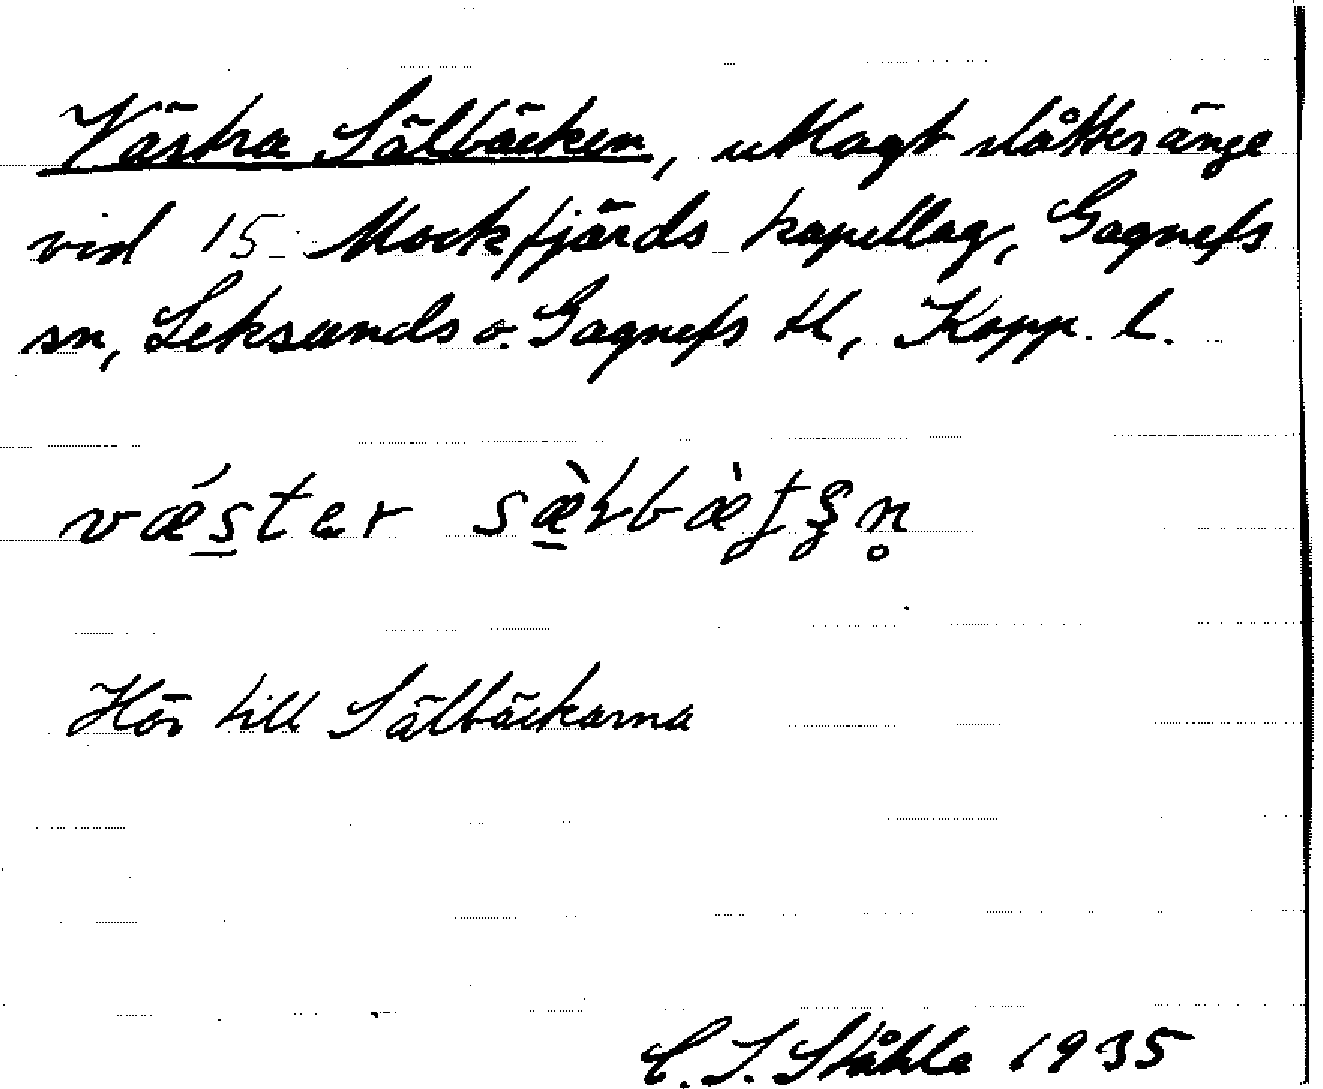 Västra Sälbäcken, utlagt slåtteränge
vid 15. Mockfjärds kapellag, Gagnefs
sn, Leksands o. Gagnefs tl, Kopp. l.
væ´ster
Hör till Sälbäckarna
C. I. Ståhle 1935